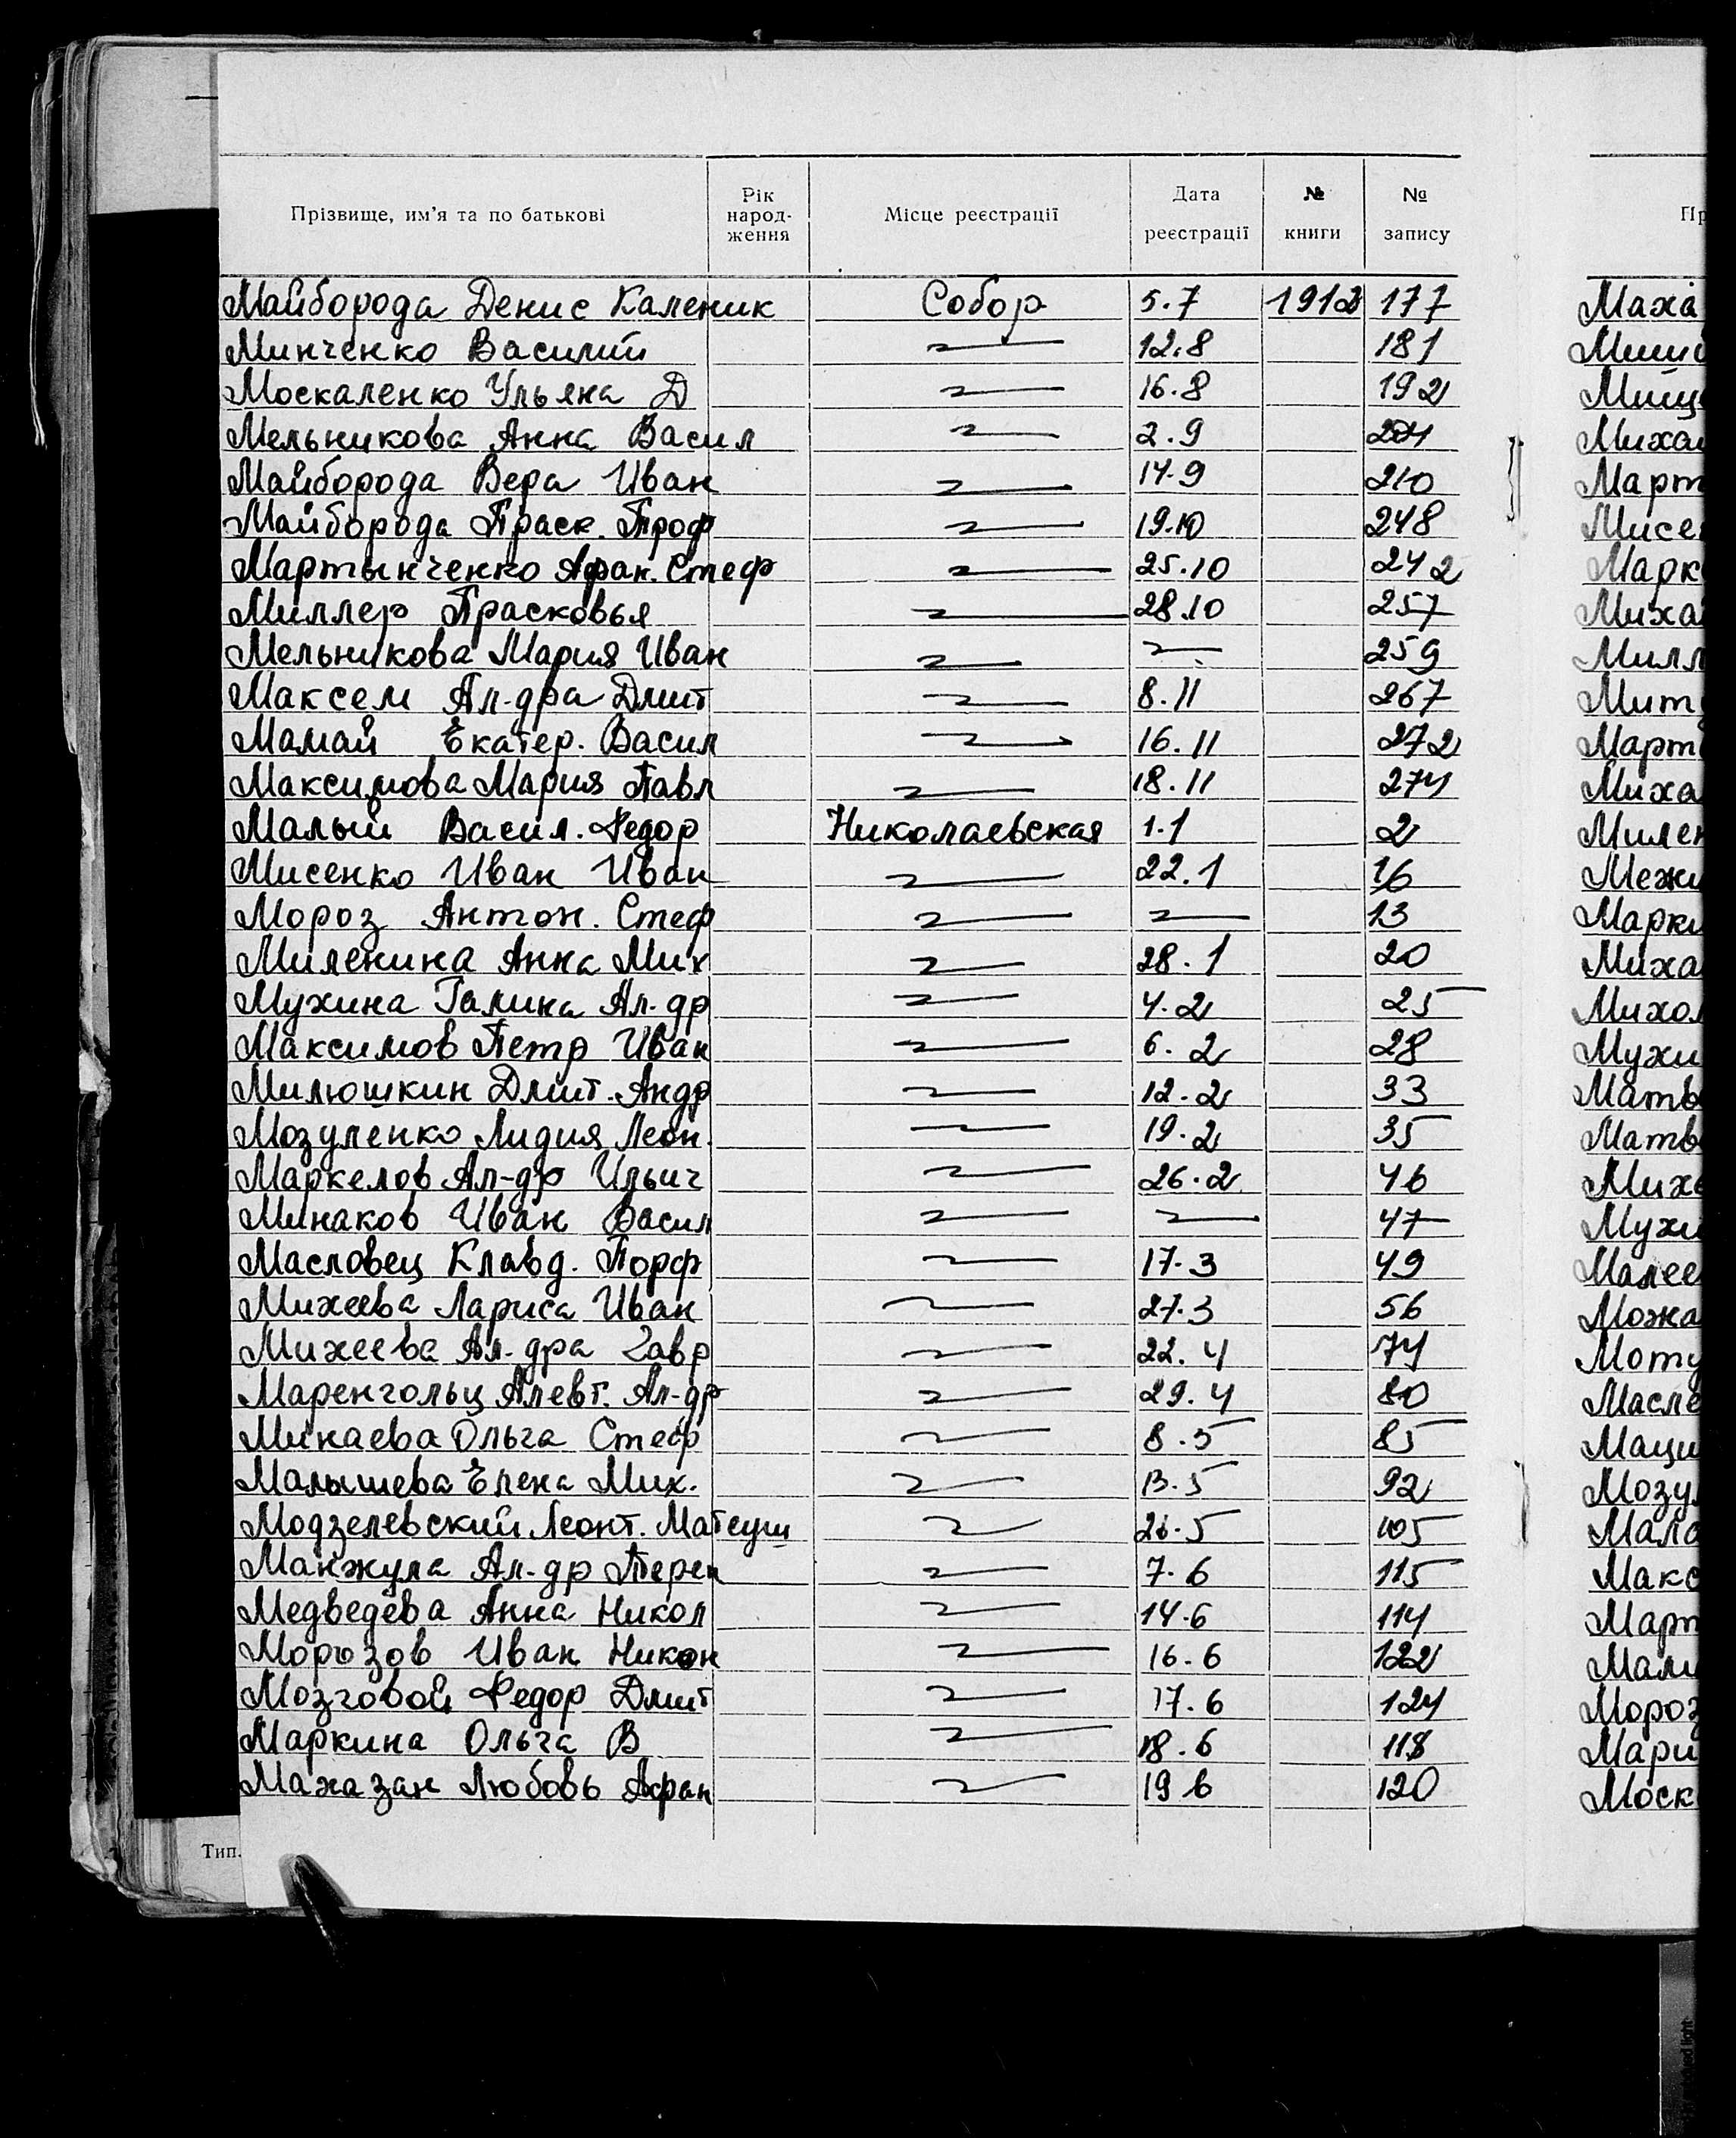 Прізвище, им'я та по батькові Рік народ-ження Місце реєстрації Дата реєстрації № книги № запису
Майборода Денис Каленик Собор 5.7 1912 177
Минченко Василий — 12.8 181
Москаленко Ульяна Д — 16.8 192
Мельникова Анна Васил — 2.9
Майборода Вера Иван — 14.9 210
Майборода Праск. Проф — 19.10 248
Мартынченко Афан. Стеф — 25.10 242
Миллер Прасковья — 28.10 257
Мельникова Мария Иван — — 259
Максем Ал-дра Дмит — 8.11 267
Мамай Екатер. Васил — 16.11 272
Максимова Мария Павл — 18.11 274
Малый Васил. Федор Николаевская 1.1 2
Мисенко Иван Иван — 22.1 16
Мороз Антон. Стеф — — 13
Миленина Анна Мих — 28.1 20
Мухина Галина Ал-др — 4.2 25
Максимов Петр Иван — 6.2 28
Милюшкин Дмит. Андр — 12.2 33
Мозуленко Лидия Леон. — 19.2 35
Маркелов Ал-др Ильич — 26.2 46
Минаков Иван Васил — — 47
Масловец Клавд. Порф — 17.3 49
Михеева Лариса Иван — 27.3 56
Михеева Ал-дра Гавр — 22.4 74
Маренгольц Алевт. Ал-др — 29.4 80
Минаева Ольга Стеф — 8.5 85
Малышева Елена Мих. — 13.5 92
Модзелевский Леонт. Матеуш — 26.5 105
Манжула Ал-др Терен — 7.6 115
Медведева Анна Никол — 14.6 114
Морозов Иван Никон — 16.6 122
Мозговой Федор Дмит — 17.6 124
Маркина Ольга В — 18.6 118
Махазан Любовь Афан — 19 6 120
Тип.